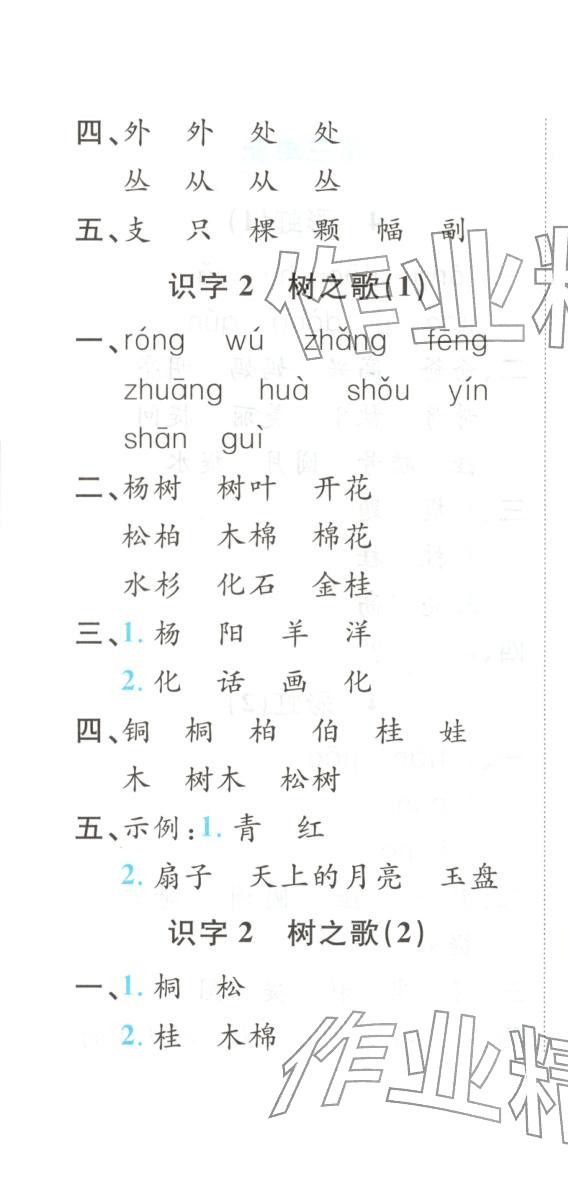 四、外 外 处 处
丛 从 从 丛
五、支 只 棵 颗 幅 副
识字2 树之歌(1)
一、róng wú zhǎng fēng
zhuāng huà shǒu yín
shān guì
二、杨树 树叶 开花
松柏 木棉 棉花
水杉 化石 金桂
三、1.杨 阳 羊 洋
2.化 话 画 化
四、铜 桐 柏 伯 桂 娃
木 树木 松树
五、示例：1.青 红
2.扇子 天上的月亮 玉盘
识字2 树之歌(2)
一、1.桐 松
2.桂 木棉
作业精
作业精